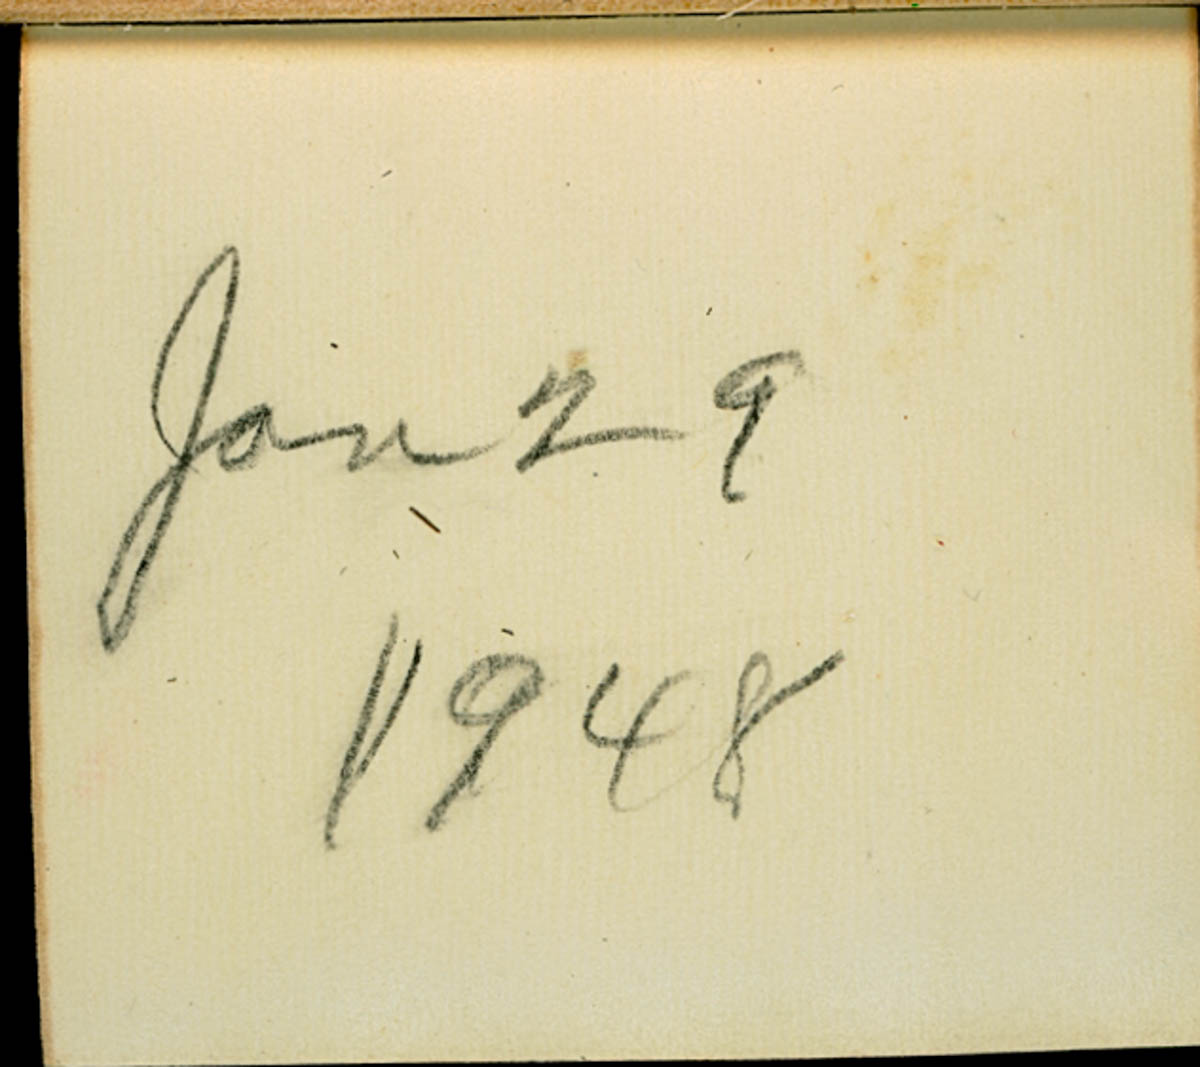 Jan 29
1948